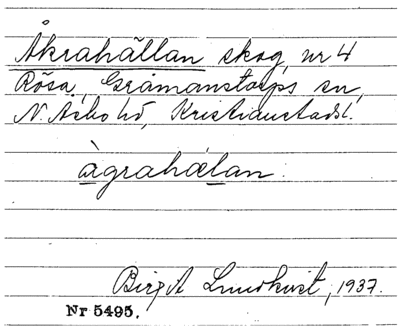 Åkrahällan skog, nr 4
Rösa, Gråmanstorps sn,
N. Åsbo hd, Kristianstads l.
àgrahælan.
Birgit Lundkvist, 1937.
Nr 5495.